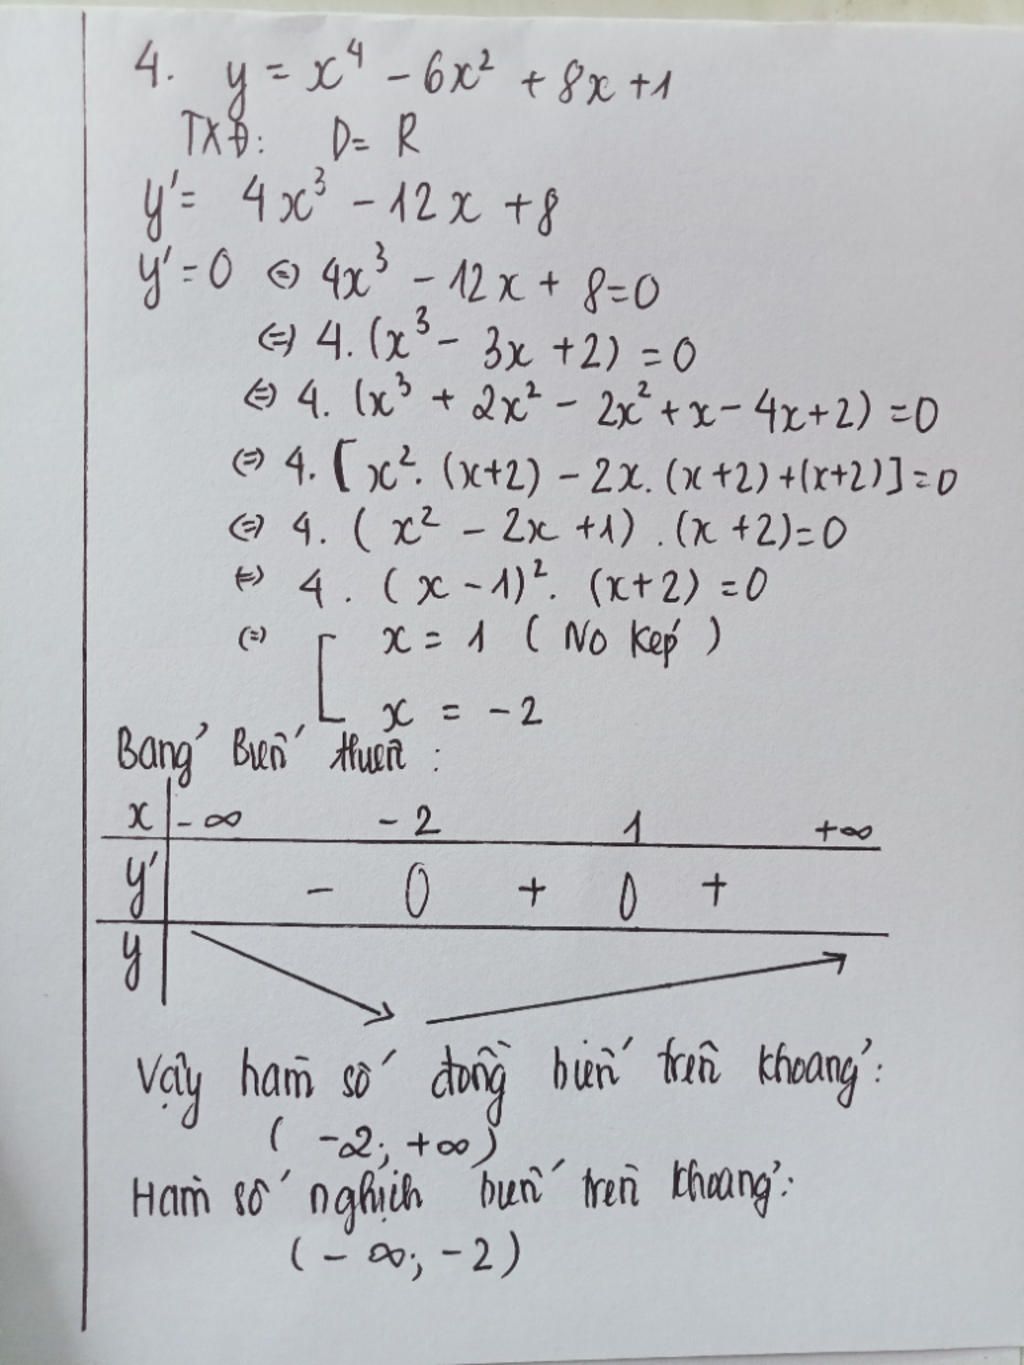 4. y = x⁴ - 6x² + 8x + 1
TXĐ: D = R
y' = 4x³ - 12x + 8
y' = 0 ⇔ 4x³ - 12x + 8 = 0
⇔ 4. (x³ - 3x + 2) = 0
⇔ 4. (x³ + 2x² - 2x² + x - 4x + 2) = 0
⇔ 4. [x². (x+2) - 2x. (x+2) + (x+2)] = 0
⇔ 4. (x² - 2x + 1) . (x + 2) = 0
⇔ 4 . (x - 1)². (x + 2) = 0
⇔ [ x = 1 (No kép)
x = -2
Bảng Biến thiên :
x -∞ -2 1 +∞
y' - 0 + 0 +
y
Vậy hàm số đồng biến trên khoảng :
( -2; +∞)
Hàm số nghịch biến trên khoảng :
(-∞; -2)